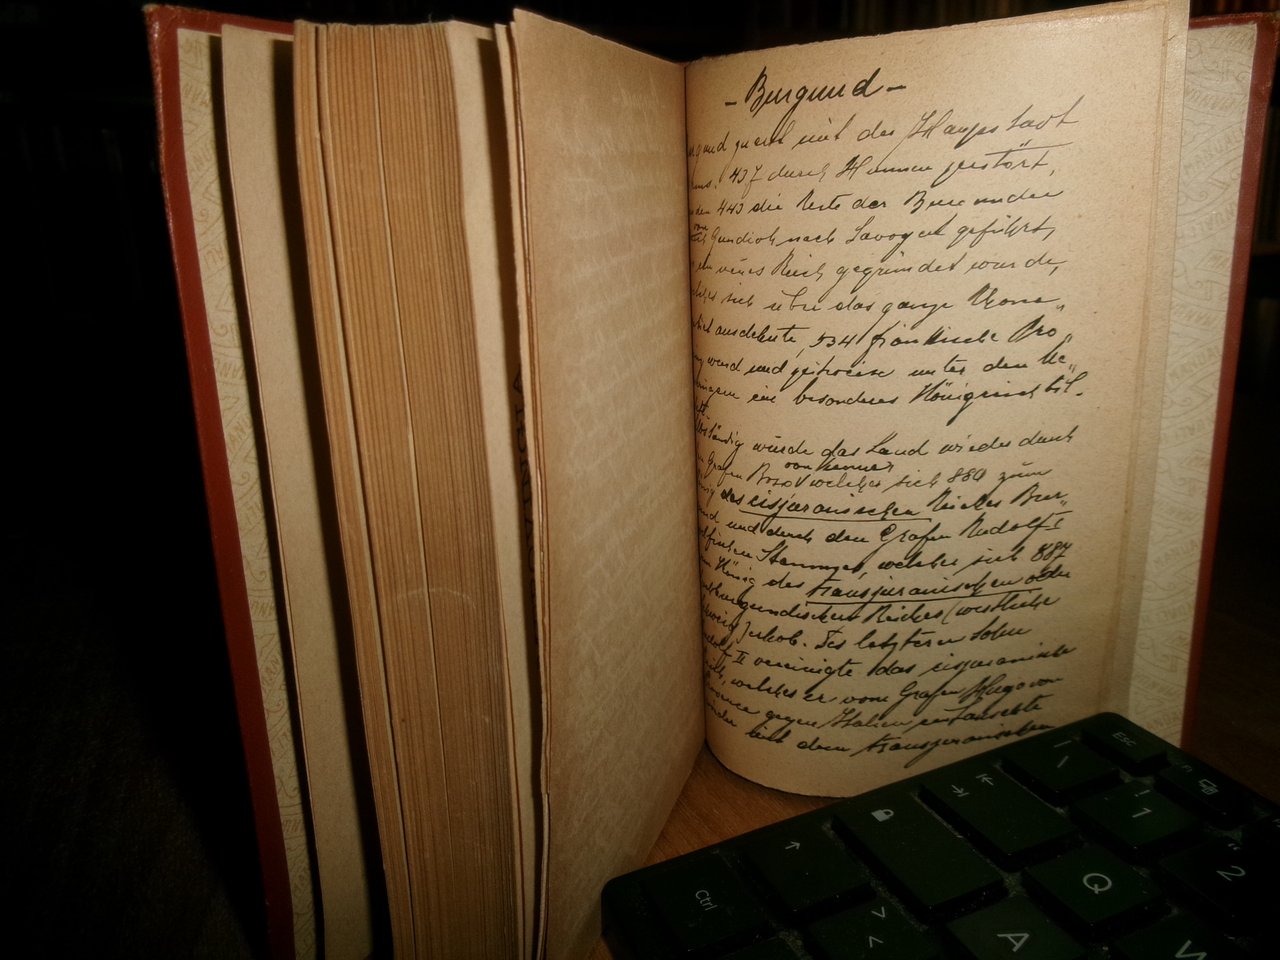 - Burgund -
zuerst mit der Hauptstadt
437 durch Hunnen zerstört,
443 die Reste der Burgunder
von
Gundioch nach Savoyen geführt,
ein neues Reich gegründet wurde,
sich über das ganze Rhone„
ausdehnte, 534 fränkische Pro„
ward und zeitweise unter den Me„
ein besonderes Königreich bil„
wurde das Land wieder durch
von Vienne
Grafen Boso welcher sich 880 zum
des cisjuranischen Reiches Bur„
und durch den Grafen Rudolf I
Stammes, welcher sich 887
König des transjuranischen oder
burgundischen Reiches (westliche
Schweiz) erhob. Des letzteren Sohn
II vereinigte das cisjuranische
welches er vom Grafen Hugo von
gegen Italien
mit dem transjuranischen
Ctrl
ESC
!
1
"
2
Q
A
W
>
<
|